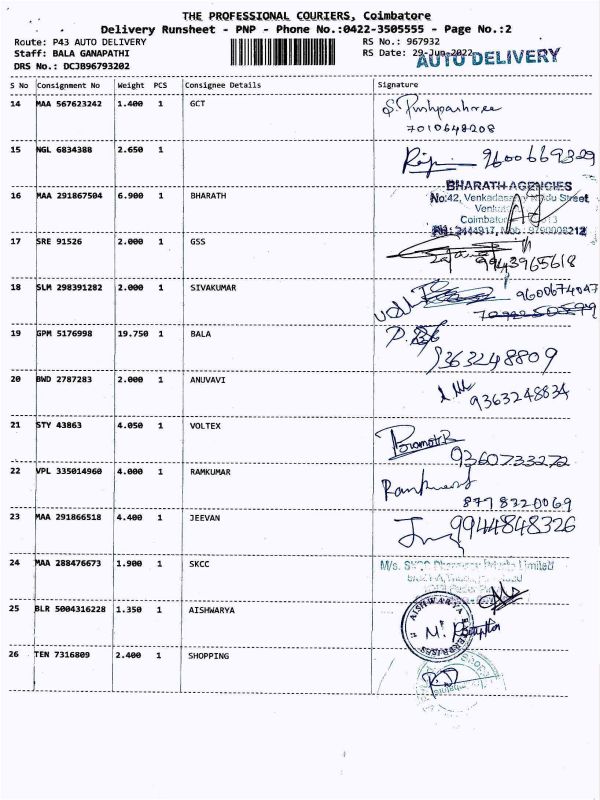 THE PROFESSIONAL COURIERS, Coimbatore
Delivery Runsheet - PNP - Phone No.:0422-3505555 - Page No.:2
Route: P43 AUTO DELIVERY RS No.: 967932
Staff: BALA GANAPATHI RS Date: 29-Jun-2022
AUTO DELIVERY
DRS No.: DCJB96793202
S No Consignment No Weight PCS Consignee Details Signature
14 MAA 567623242 1.400 1 GCT
7010648208
15 NGL 6834388 2.650 1
9600669329
BHARATH AGENCIES
16 MAA 291867504 6.900 1 BHARATH No:42, Street
17 SRE 91526 2.000 1 GSS
9943965618
18 SLM 298391282 2.000 1 SIVAKUMAR
9600674047
19 GPM 5176998 19.750 1 BALA
9363248809
20 BWD 2787283 2.000 1 ANUVAVI
9363248834
21 STY 43863 4.050 1 VOLTEX
9360733272
22 VPL 335014960 4.000 1 RAMKUMAR
8778320069
23 MAA 291866518 4.400 1 JEEVAN
9944848326
24 MAA 288476673 1.900 1 SKCC M/s. Private Limited
25 BLR 5004316228 1.350 1 AISHWARYA
AISHWARYA ENTERPRISES
26 TEN 7316809 2.400 1 SHOPPING